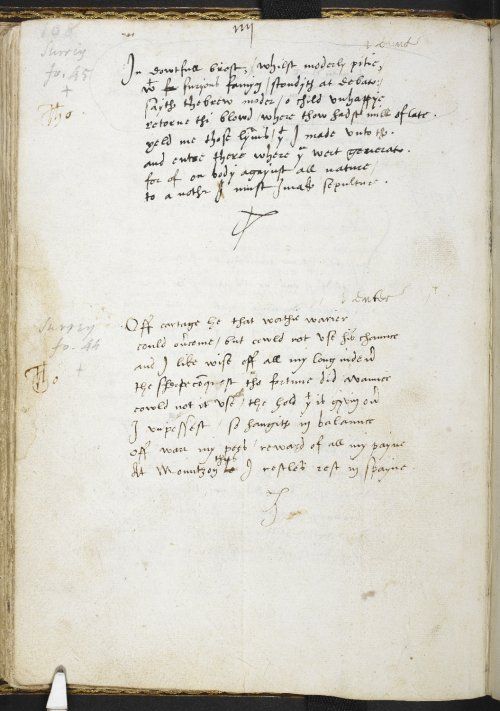 Surrey
fo. 45
+
Tho
In dowtfull brest, / whilst moderly pitie,
wt furyous famyn / standyth at debate /
sayth thebrew moder / o child unhappye
retorne thi blowd / where thow hadst milk of late .
yeld me those lyms / yt I made unto the .
and entre there where yu wert generate .
for of on body agaynst all nature /
to a nothr I must make sepulture .
Surrey
fo. 44
+
Tho
Off cartage he that worthie warier
could ovrcome / but cowld not use his chaunce
and I like wise off all my long indevor
the sherpe conquest tho fortune did avaunce
cowld not it use / the hold yt is gyvin over
I unpossest / so hangith in balaunce
off warr my pees / reward of all my payne
At Mountzon thus I restles rest in spayne